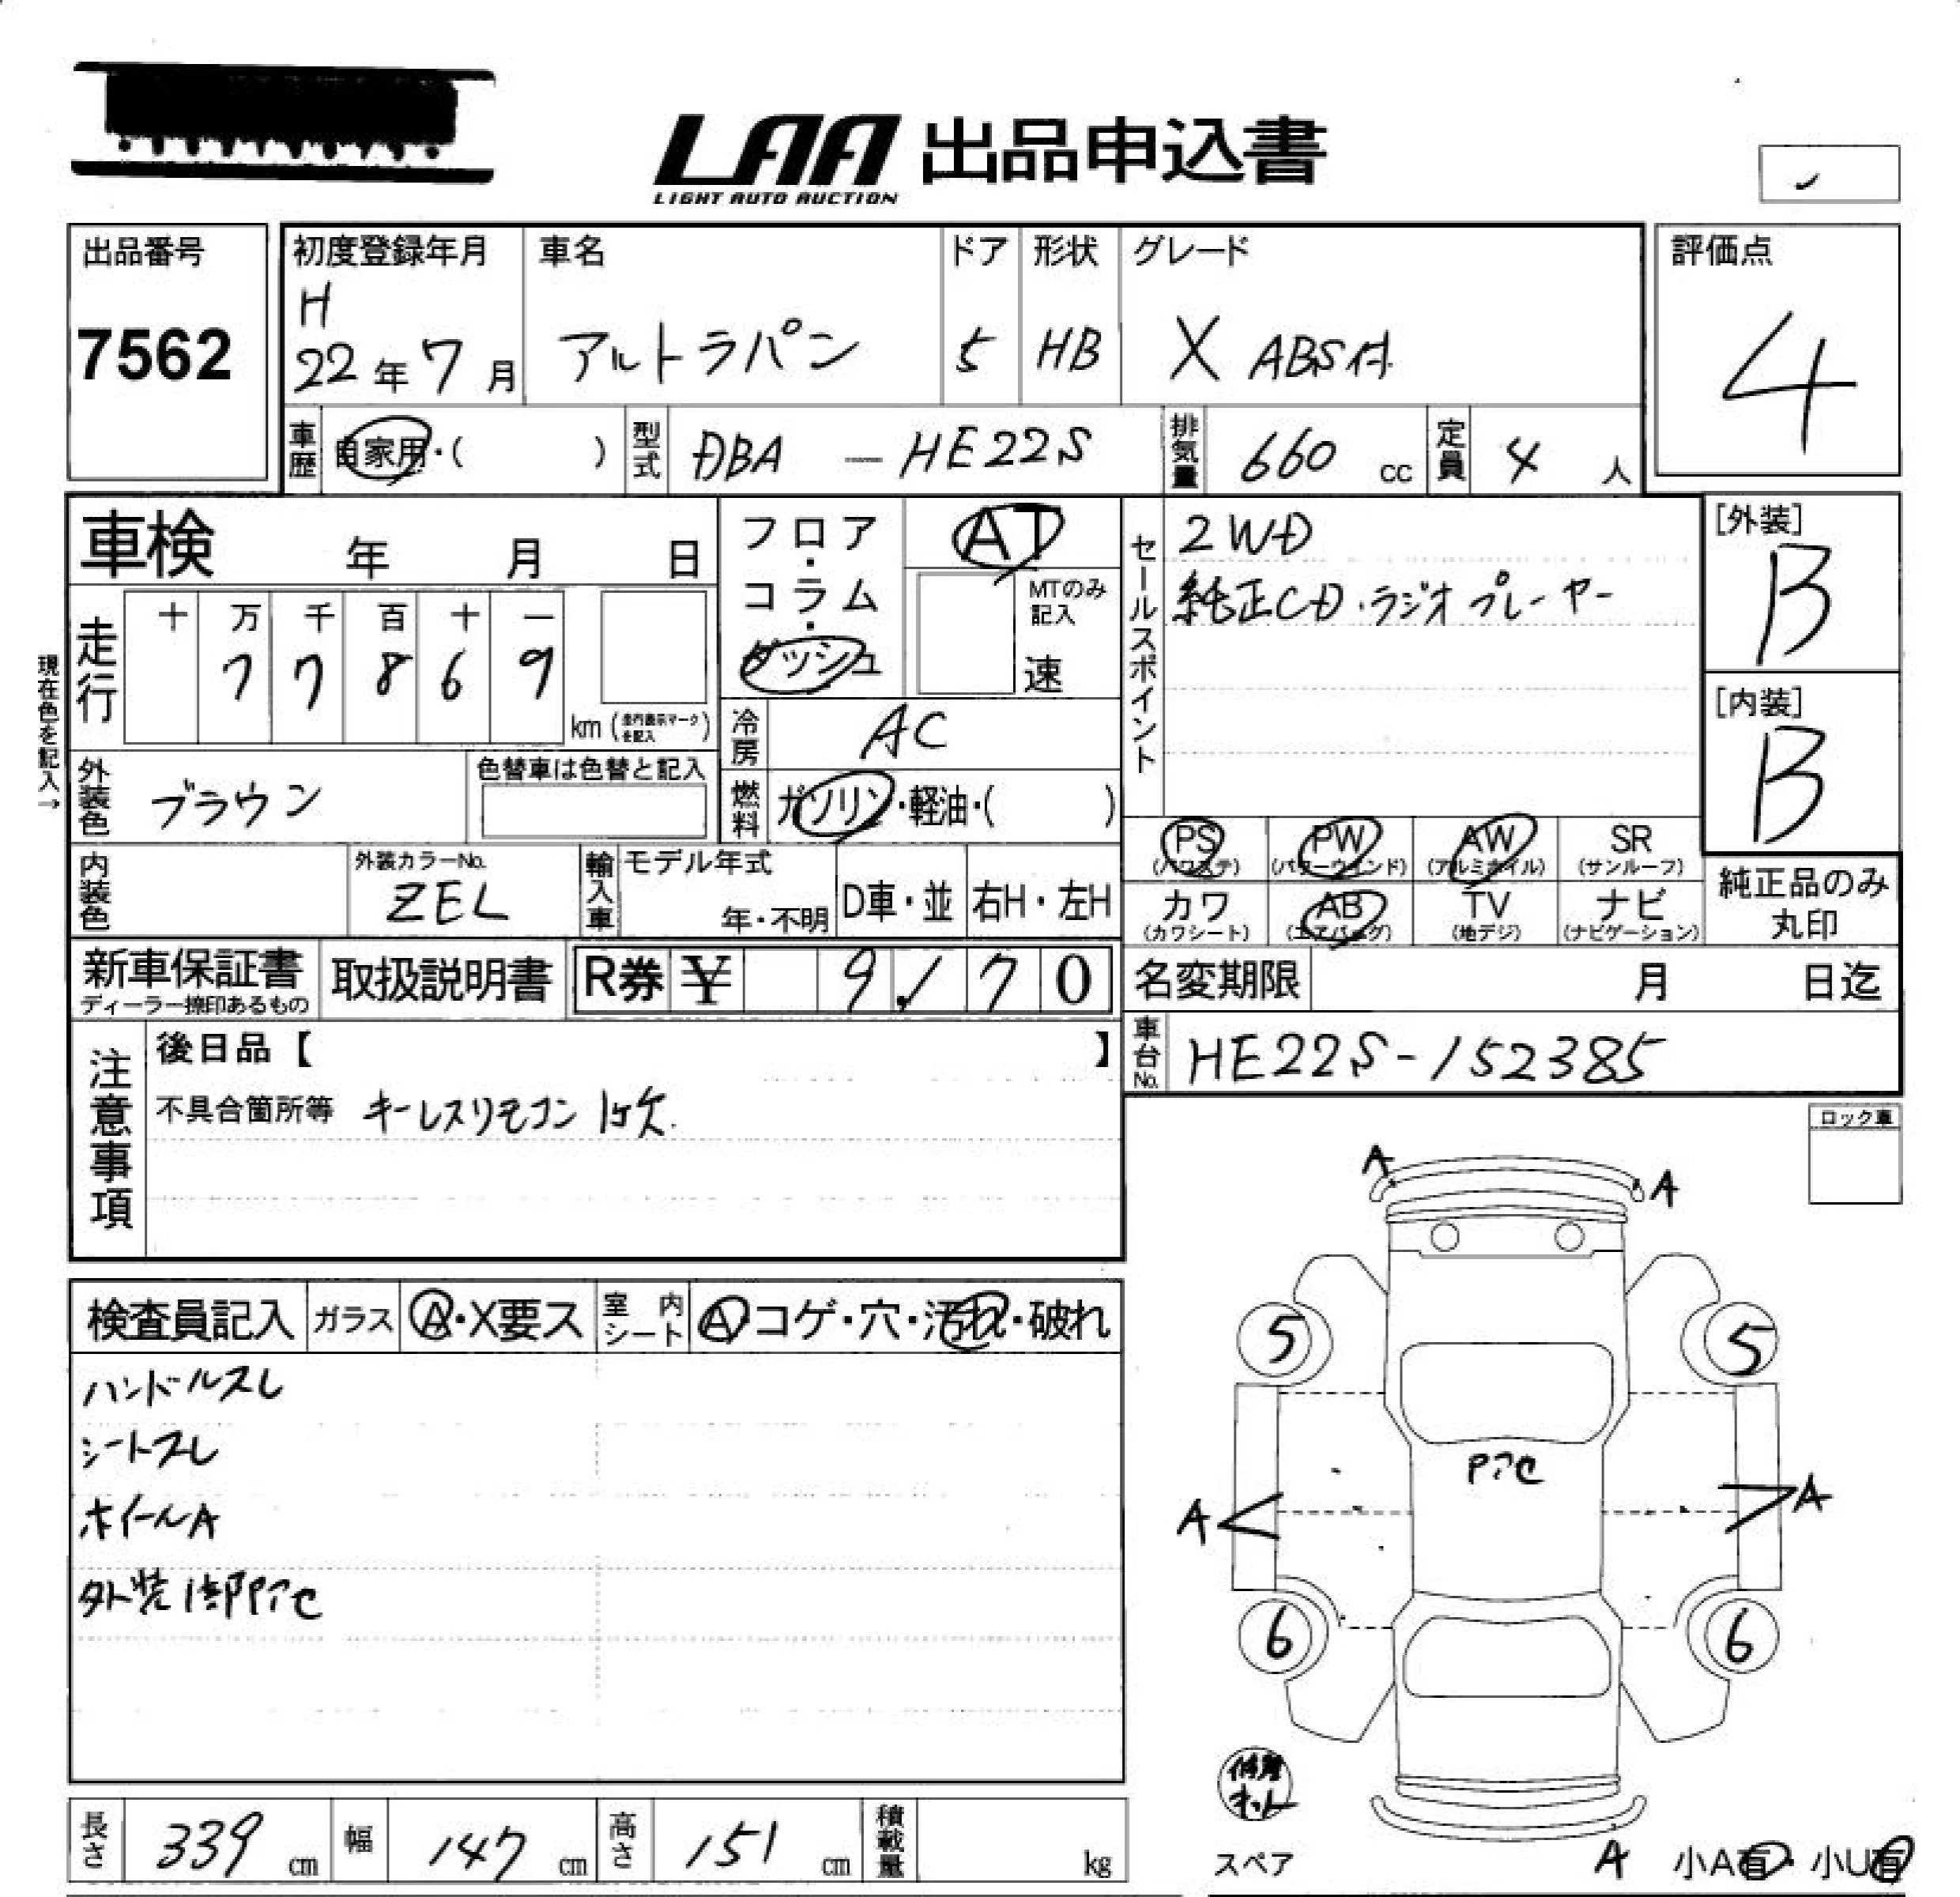 LAA 出品申込書
LIGHT AUTO AUCTION
出品番号
7562
初度登録年月
H
22年7月
車名
アルトラパン
ドア
5
形状
HB
グレード
X ABS付
評価点
4
車歴 自家用・( )
型式 DBA — HE22S
排気量 660 cc
定員 4 人
車検 年 月 日
フロア・コラム・ダッシュ
AT
MTのみ記入
速
セールスポイント
2WD
純正CD・ラジオプレーヤー
[外装]
B
[内装]
B
現在色を記入→
走行
十 万 千 百 十 一
7 7 8 6 9
km
冷房 AC
外装色 ブラウン
色替車は色替と記入
燃料 ガソリン・軽油・( )
PS (パワステ)
PW (パワーウインド)
AW (アルミホイル)
SR (サンルーフ)
カワ (カワシート)
AB (エアバッグ)
TV (地デジ)
ナビ (ナビゲーション)
純正品のみ
丸印
内装色
外装カラーNo.
ZEL
輸入車
モデル年式
年・不明
D車・並
右H・左H
新車保証書
ディーラー捺印あるもの
取扱説明書
R券 ¥ 9,170
名変期限 月 日迄
車台No. HE22S-152385
注意事項
後日品【 】
不具合箇所等 キーレスリモコン 1ケ欠
ロック車
検査員記入
ガラス A・X要ス
室内シート A コゲ・穴・汚れ・破れ
ハンドルスレ
シートスレ
ホイールA
外装1部Pアセ
A
A
5
5
Pアセ
A
A
6
6
修理キット
スペア
A
小A有・小U有
長さ 339 cm
幅 147 cm
高さ 151 cm
積載量 kg